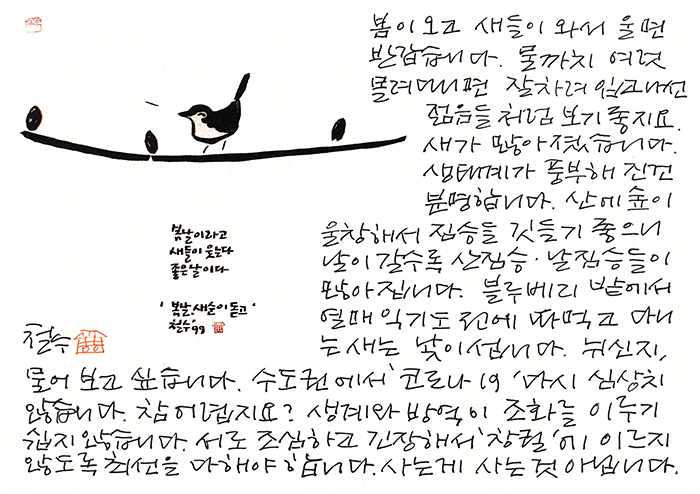 봄이 오고 새들이 와서 울면
반갑습니다. 물까치 여럿
몰려다니면 잘차려 입고나선
젊음들처럼 보기 좋지요.
새가 많아졌습니다.
생태계가 풍부해 진건
분명합니다. 산에 숲이
울창해서 짐승들 깃들기 좋으니
날이 갈수록 산짐승·날짐승들이
많아집니다. 블루베리 밭에서
열매 익기도 전에 따먹고 다니
는 새는 낯이 섭니다. 뉘신지,
물어 보고 싶습니다. 수도권에서 '코로나 19' 다시 심상치
않습니다. 참 어렵지요? 생계와 방역이 조화를 이루기
쉽지 않습니다. 서로 조심하고 긴장해서 '창궐'에 이르지
않도록 최선을 다해야 합니다. 사는게 사는것 아닙니다.
봄날이라고
새들이 웃는다
좋은날이다
' 봄날, 새순이 돋고 '
철수 '99
철수